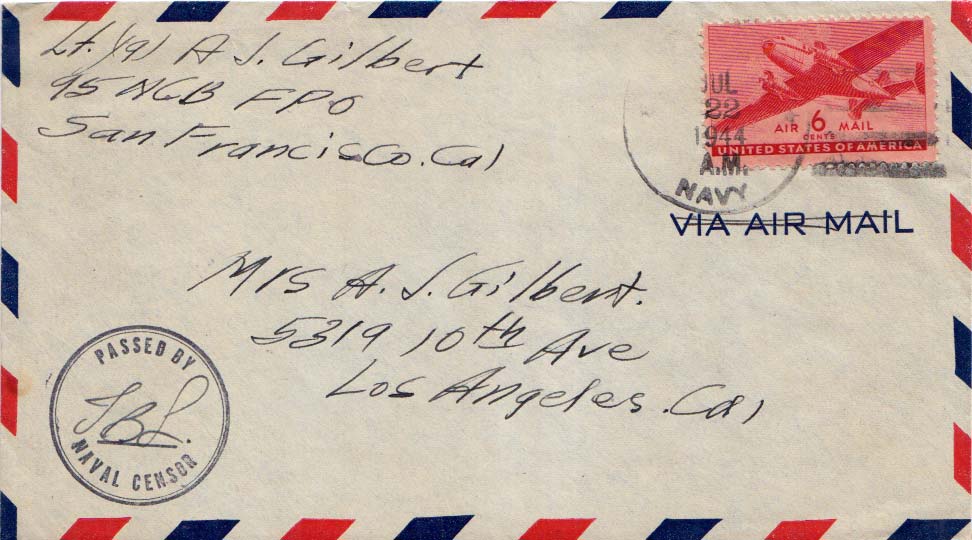 Lt. (jg) A J. Gilbert
95 NCB FPO
San Francisco. Cal
JUL
22
1944
A.M.
NAVY
AIR 6 MAIL
CENTS
UNITED STATES OF AMERICA
VIA AIR MAIL
Mrs A. J. Gilbert.
5319 10th Ave
Los Angeles. Cal
PASSED BY
NAVAL CENSOR